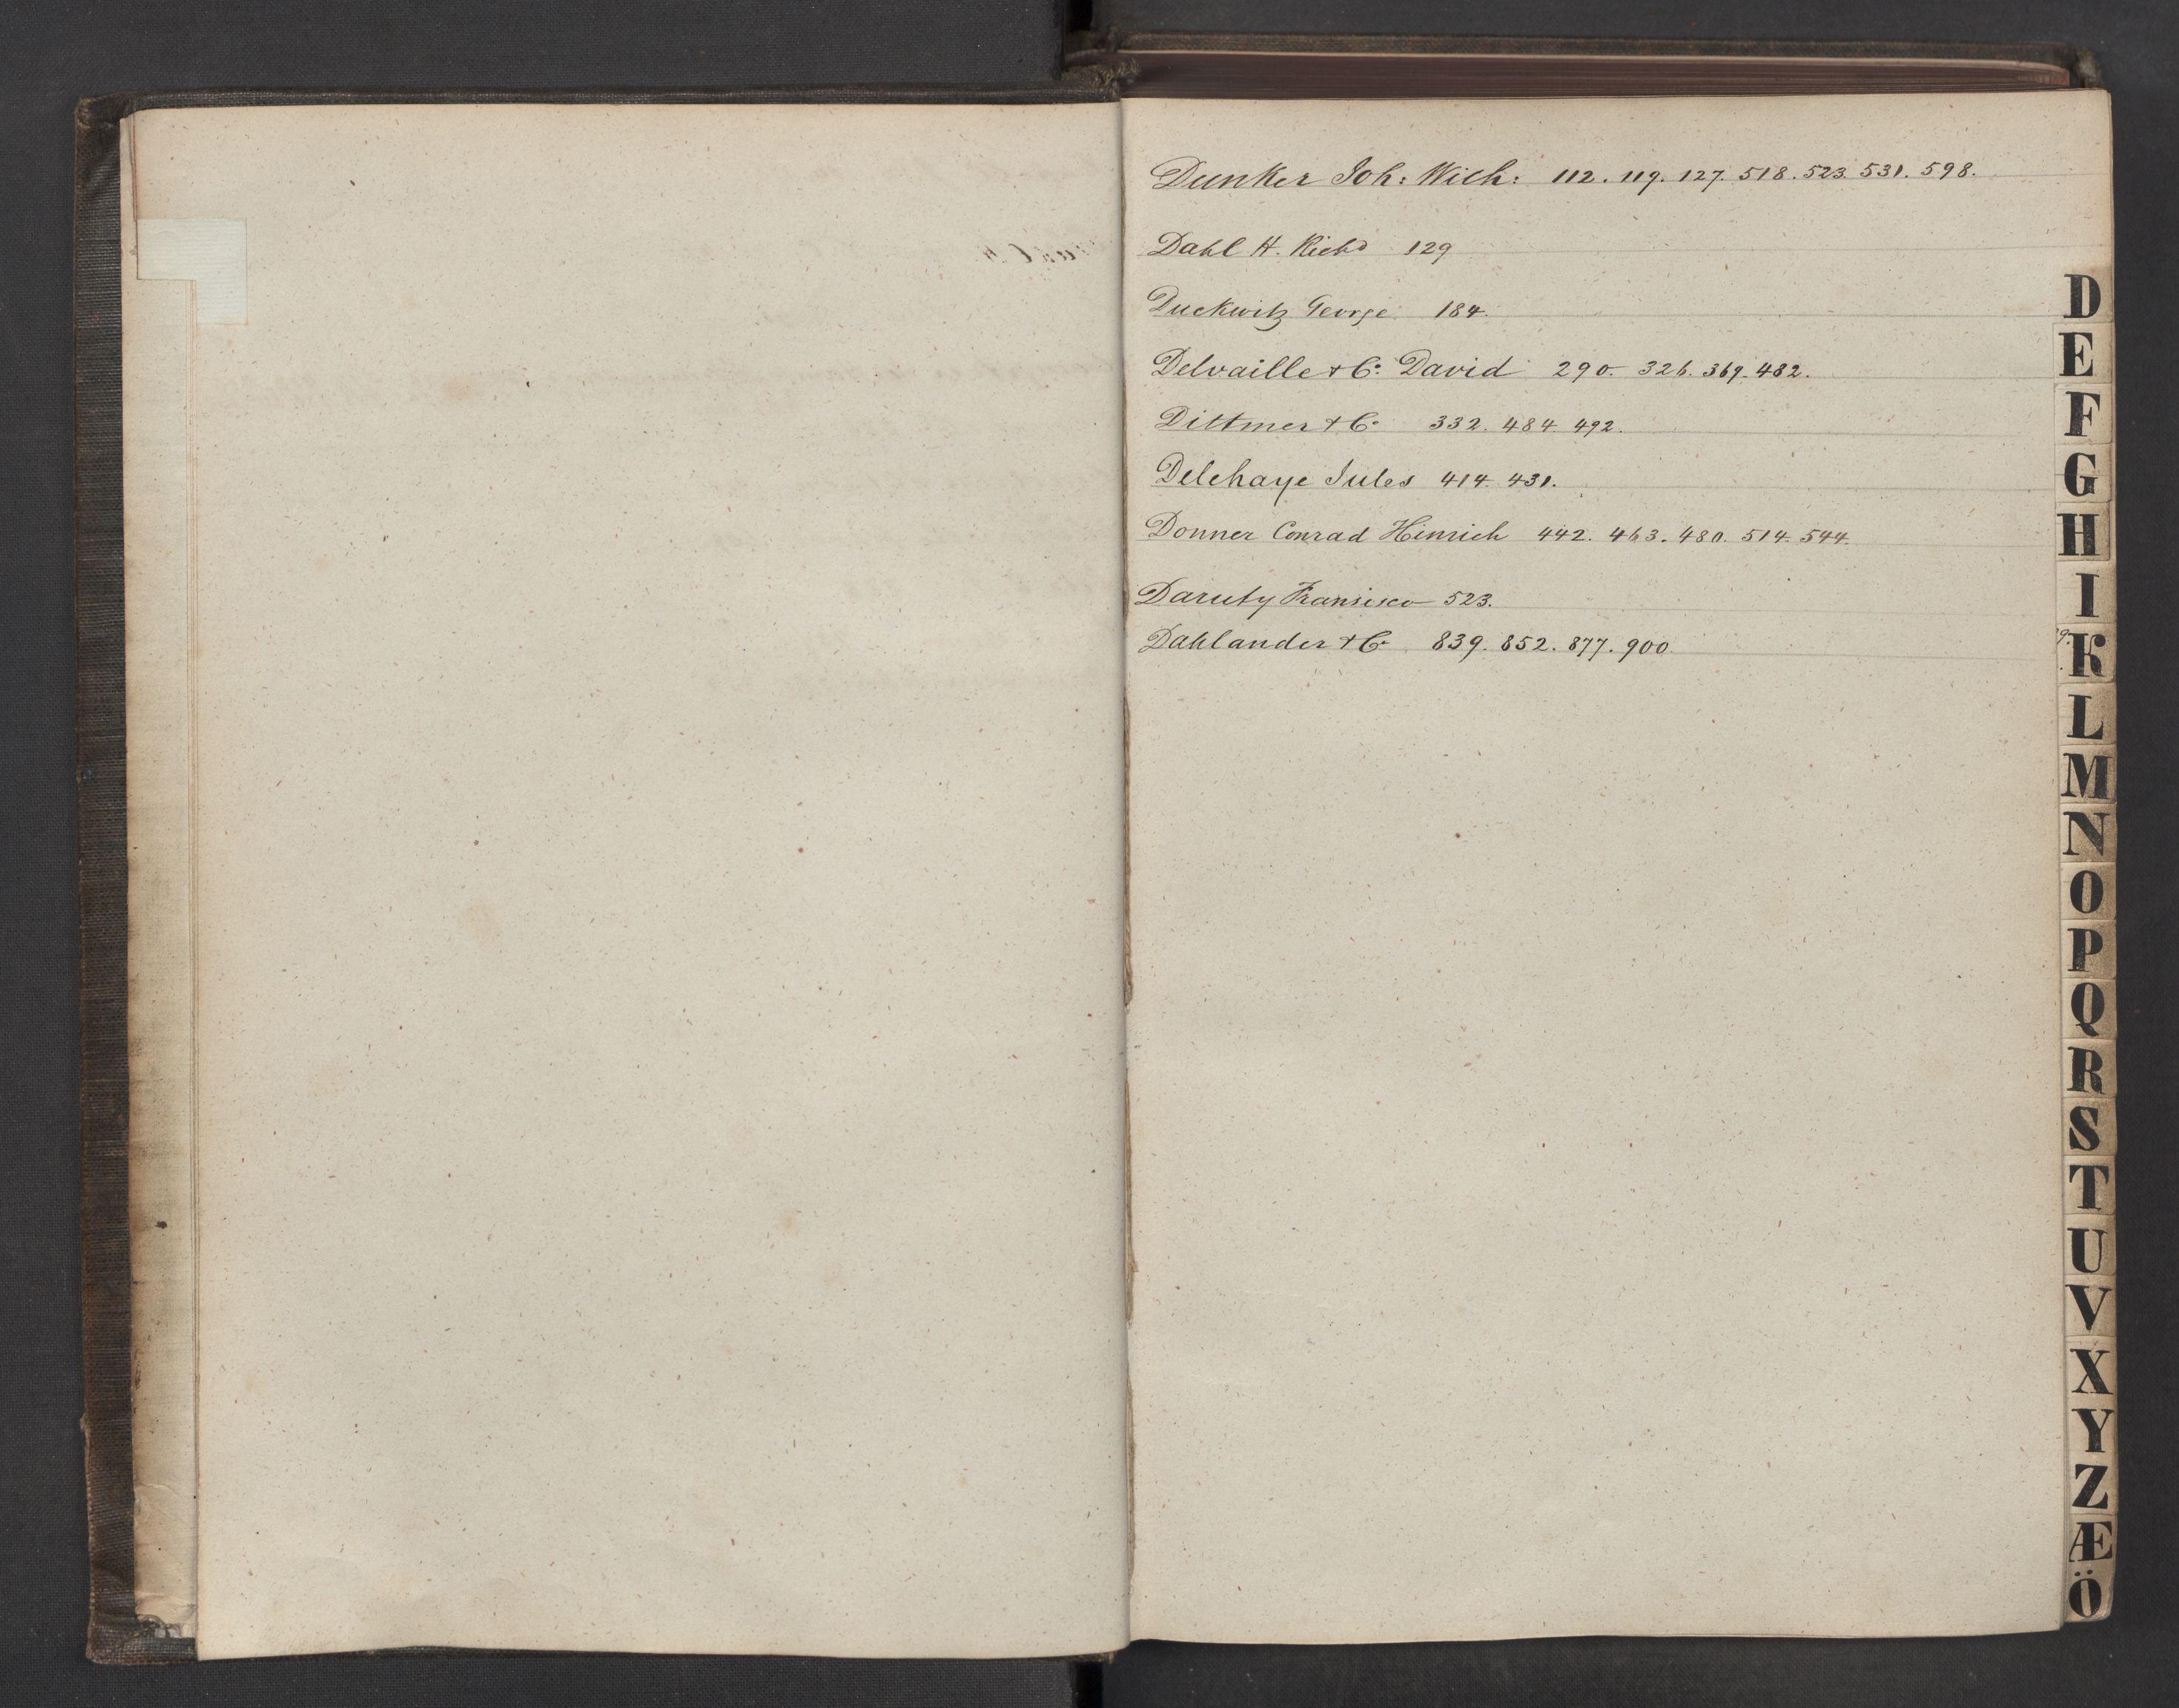 Dunker Joh: Wich: 112. 119. 127. 518. 523. 531. 598.
Dahl H. Richd 129
Duckwitz George 184.
Delvaille & Co: David 290. 326. 369. 482.
Dittmer & Co 332. 484. 492.
Delehaye Jules 414. 431.
Donner Conrad Hinrich 442. 463. 480. 514. 544.
Daruty Fransisco 523.
Dahlander & Co 839. 852. 877. 900.
D
E
F
G
H
I
K
L
M
N
O
P
Q
R
S
T
U
V
X
Y
Z
Æ
Ö